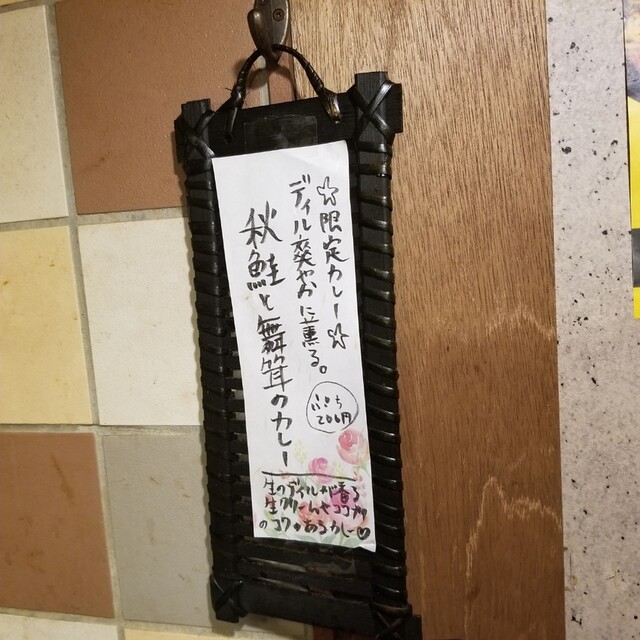 ☆限定カレー☆
ディル爽やかに薫る。
秋鮭と舞茸のカレー
ぷち
200円
生のディルが香る
生クリームとココナツ
のコク・あるカレー♡